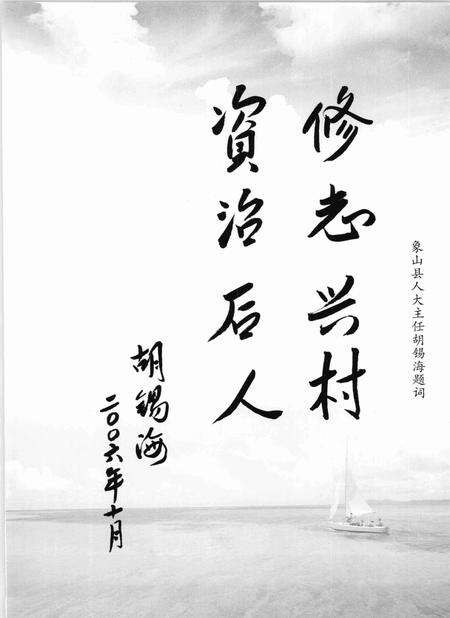 修志兴村
資治后人
胡锡海
二〇〇六年十月
象山县人大主任胡锡海题词